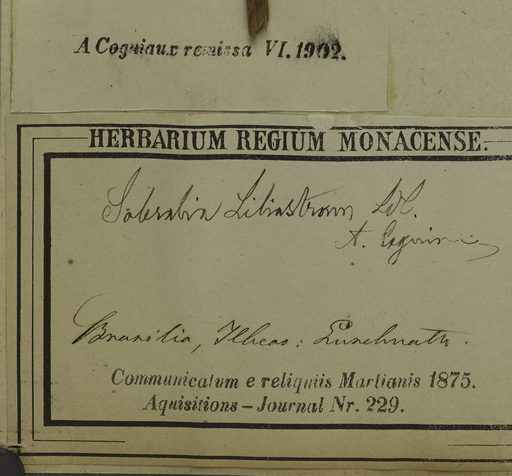 A Cogniaux remissa VI. 1902.
HERBARIUM REGIUM MONACENSE.
Sobralia Liliastrum Ldl.
A. Cogniaux
Brasilia, Ilheos: Luschnath.
Communicatum e reliquiis Martianis 1875.
Aquisitions – Journal Nr. 229.